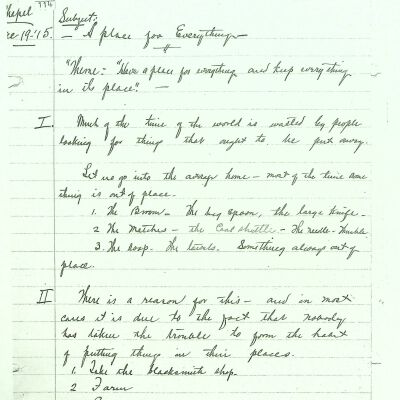 Chapel 776
19-'15.
Subject:
— "A place for Everything —
"Theme:- "Have a place for everything and keep everything
in its place". —
I. Much of the time of the world is wasted by people
looking for things that ought to be put away.
Let us go into the average home — most of the time some
thing is out of place.
1. The Broom — The big spoon, the large knife —
2 The Matches — the Coal shuttle — The needle - Thimble
3. The soap. The towels. Something always out of
place.
II There is a reason for this — and in most
cases it is due to the fact that nobody
has taken the trouble to form the habit
of putting things in their places.
1. Take the blacksmith shop.
2 Farm